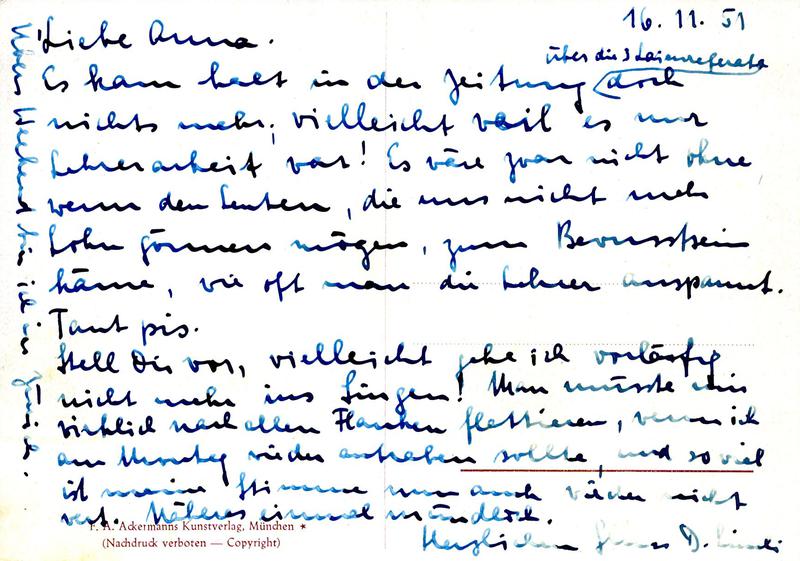 16. 11. 51
Liebe Anna.
über die 3 Laienreferate
Es kam halt in der Zeitung doch
nichts mehr; vielleicht weil es nur
Lehrerarbeit war! Es wäre zwar nicht ohne
wenn den Leuten, die uns nicht mehr
Lohn gönnen mögen, zum Bewusstsein
käme, wie oft man die Lehrer anspannt.
Tant pis.
Stell Dir vor, vielleicht gehe ich vorläufig
nicht mehr ins Singen! Man müsste mir
wirklich nach allen Flanken flattieren, wenn ich
am Montag wieder antraben sollte, und so viel
ist meine Stimme nun auch wieder nicht
wert. Näheres einmal mündlich.
Herzlichen Gruss D.
Übers Wochend bin ich in Zürich.
F. A. Ackermanns Kunstverlag, München ★
(Nachdruck verboten — Copyright)